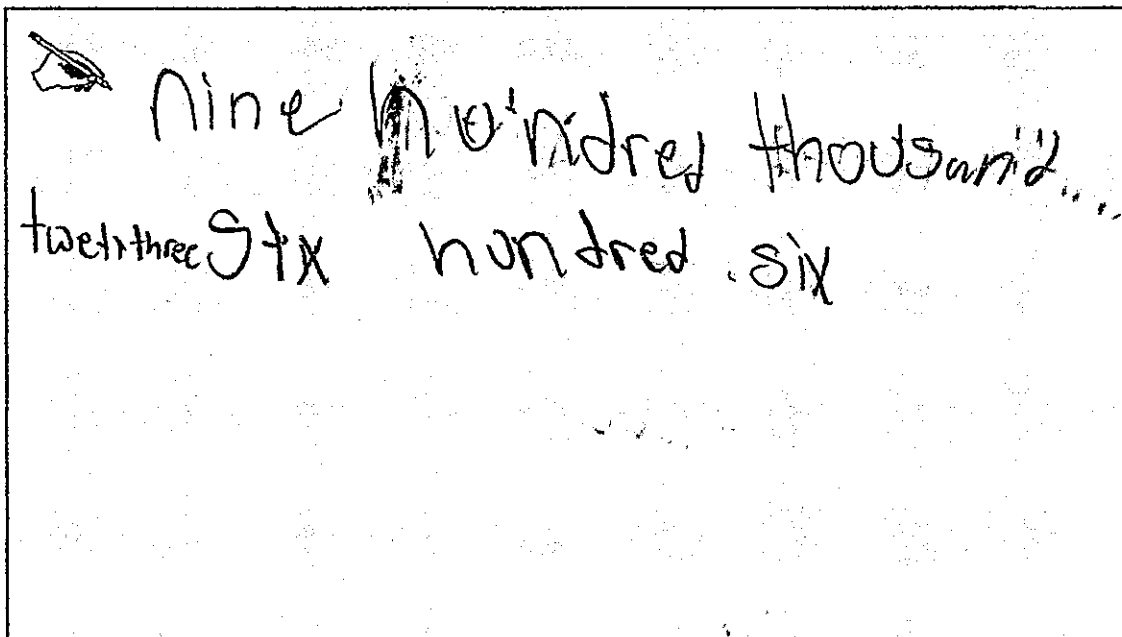 nine hundred thousand....
twetythree Six hundred six